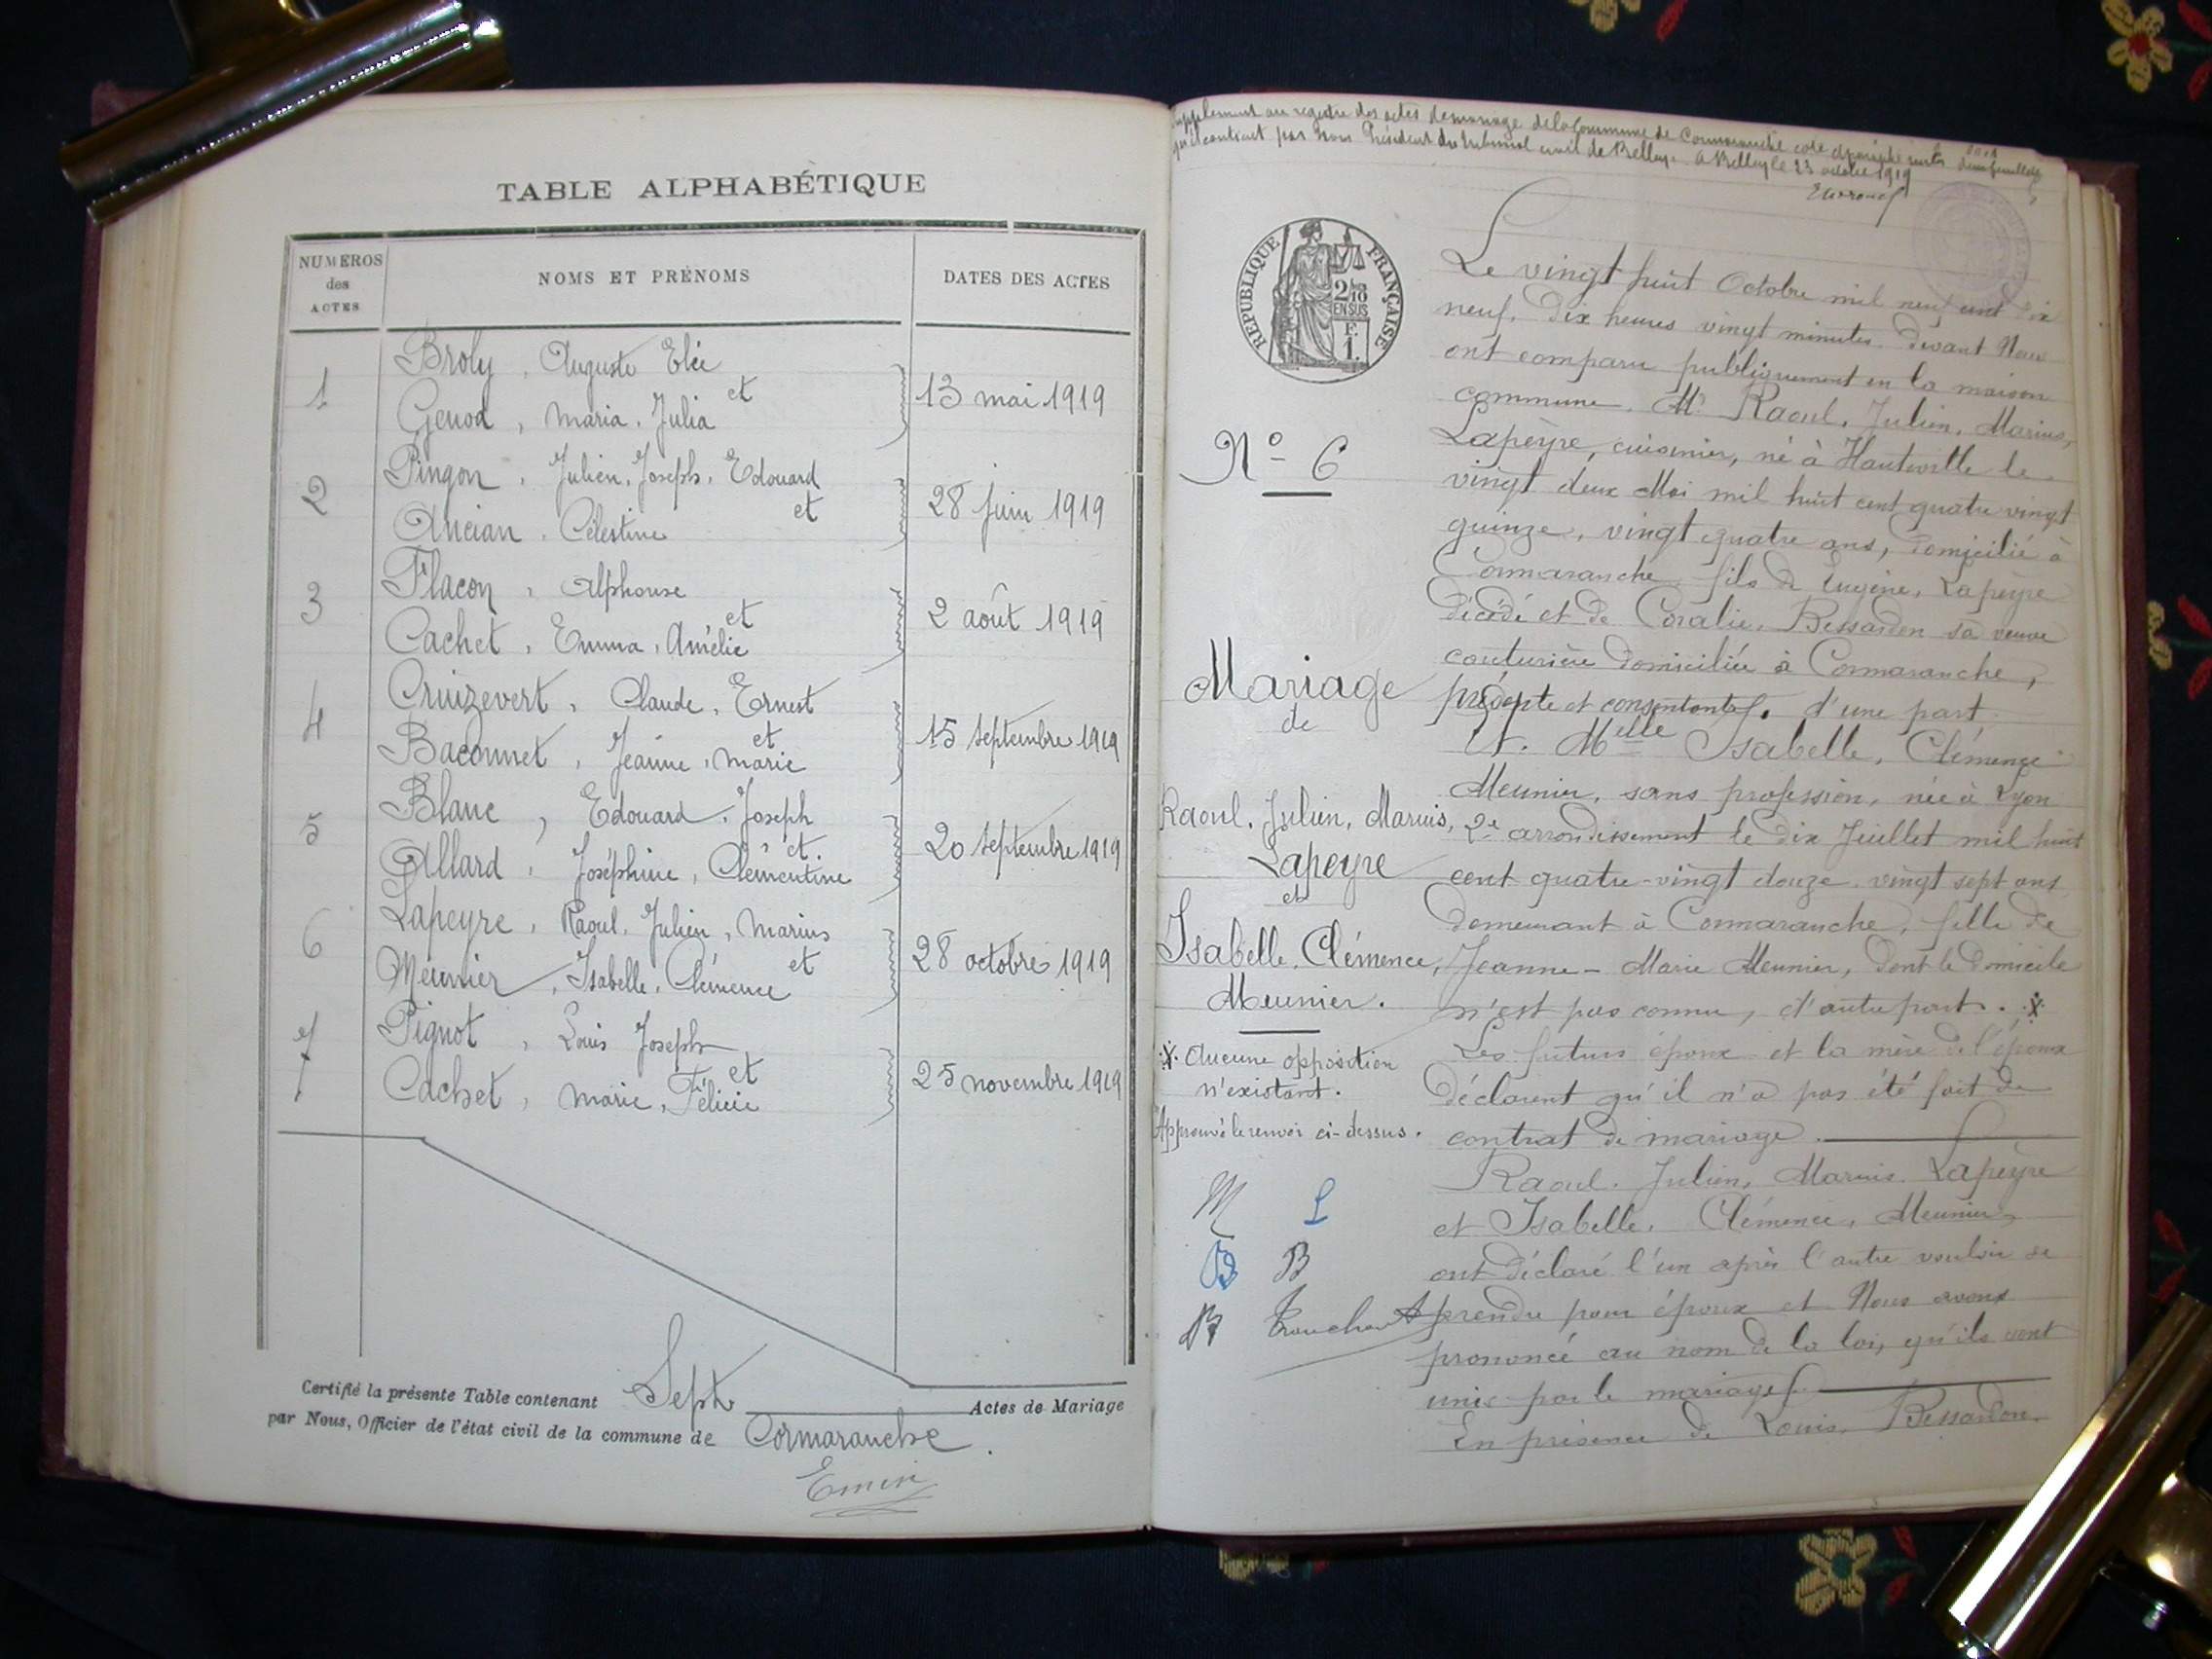 TABLE ALPHABÉTIQUE
NUMEROS
des
ACTES
NOMS ET PRÉNOMS
DATES DES ACTES
Broly, Auguste
et
1
13 mai 1919
Genod, Maria, Julia
Pingon, Julien, Joseph, Edouard
et
2
28 juin 1919
Ancian, Célestine
Flacon, Alphonse
et
3
2 août 1919
Cachet, Emma, Amélie
Cruizevert, Claude, Ernest
et
4
15 septembre 1919
Badonnet, Jeanne, Marie
Blanc, Edouard, Joseph
et
5
20 septembre 1919
Allard, Joséphine, Clémentine
Lapeyre, Raoul, Julien, Marius
et
6
28 octobre 1919
Meunier, Isabelle, Clémence
Pignot, Louis Joseph
et
7
25 novembre 1919
Cachet, Marie, Félicie
Certifié la présente Table contenant Sept Actes de Mariage
par Nous, Officier de l'état civil de la commune de Cormaranche.
Emin
Supplément au registre des actes de mariage de la Commune de Cormaranche coté
par Nous Président du tribunal civil de Belley. à Belley le 23 octobre 1919
RÉPUBLIQUE FRANÇAISE
2/10
EN SUS
F.
1.
N° 6
Mariage
de
Raoul, Julien, Marius,
Lapeyre
et
Isabelle, Clémence,
Meunier.
X Aucune opposition
n'existant.
Approuvé le renvoi ci-dessus.
M L
B B
Le vingt huit Octobre mil neuf cent dix
neuf, dix heures vingt minutes devant Nous
ont comparu publiquement en la maison
commune, Mr Raoul, Julien, Marius,
Lapeyre, cuisinier, né à Hauteville le
vingt deux Mai mil huit cent quatre vingt
quinze, vingt quatre ans, domicilié à
Cormaranche, fils de Eugène, Lapeyre
décédé et de Coralie, Bessardon sa veuve
couturière domiciliée à Cormaranche,
présente et consentante, d'une part.
Et. Melle Isabelle, Clémence
Meunier, sans profession, née à Lyon
2e arrondissement le dix Juillet mil huit
cent quatre-vingt douze, vingt sept ans
demeurant à Cormaranche, fille de
Jeanne-Marie Meunier, dont le domicile
n'est pas connu, d'autre part. X
Les futurs époux et la mère de l'époux
déclarent qu'il n'a pas été fait de
contrat de mariage.
Raoul, Julien, Marius Lapeyre
et Isabelle, Clémence, Meunier
ont déclaré l'un après l'autre vouloir se
prendre pour époux et Nous avons
prononcé au nom de la loi, qu'ils sont
unis par le mariage
En présence de Louis, Bessardon